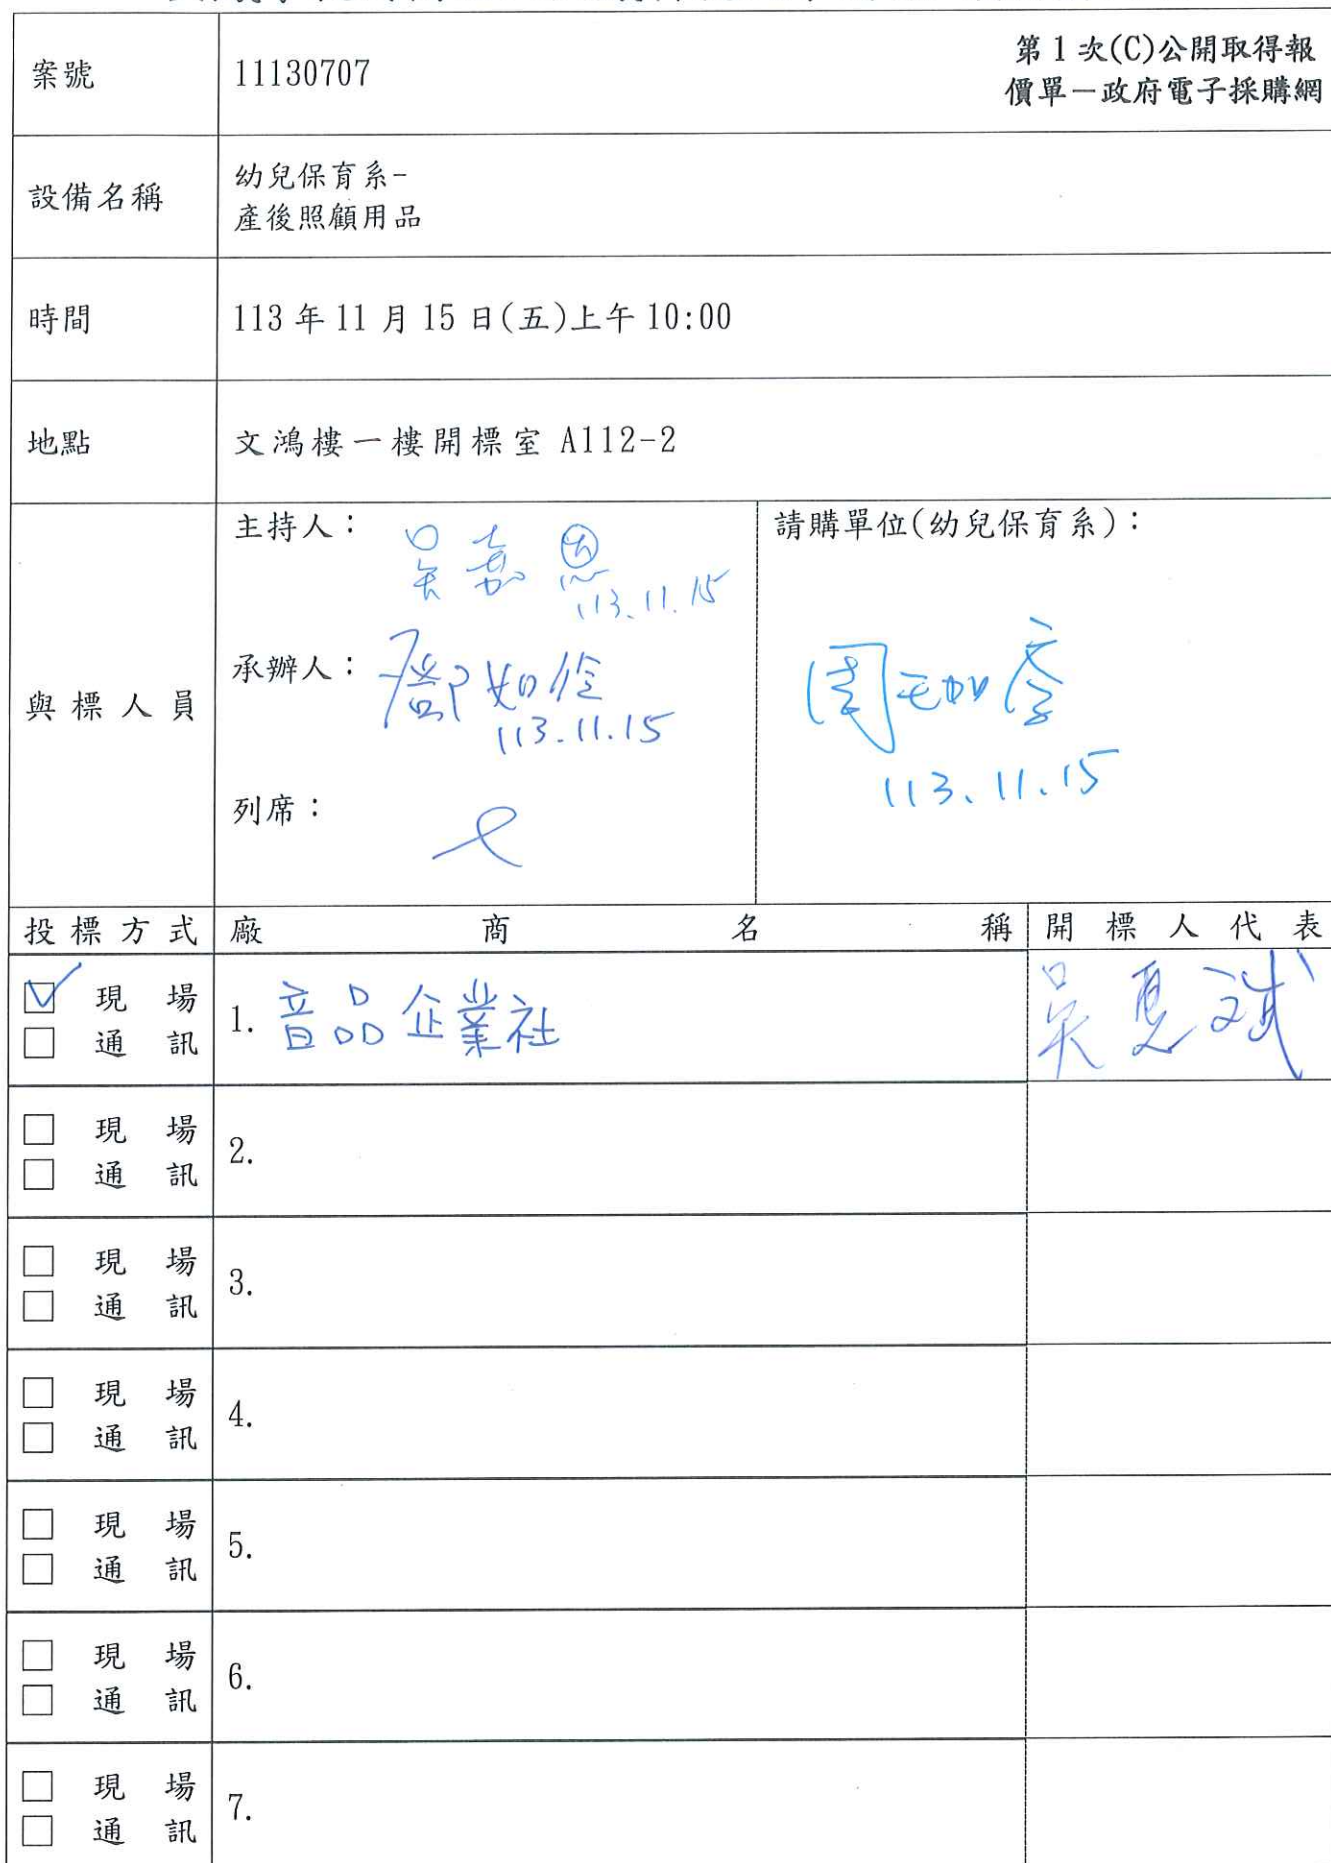 案號
11130707
第 1 次(C)公開取得報
價單－政府電子採購網
設備名稱
幼兒保育系-
產後照顧用品
時間
113 年 11 月 15 日(五)上午 10:00
地點
文鴻樓一樓開標室 A112-2
與標人員
主持人：
吳嘉恩
113.11.15
承辦人：
如
113.11.15
列席：
請購單位(幼兒保育系)：
周
113.11.15
投標方式 廠商名稱 開標人代表
☑ 現場
□ 通訊
1. 音品企業社
吳
□ 現場
□ 通訊
2.
□ 現場
□ 通訊
3.
□ 現場
□ 通訊
4.
□ 現場
□ 通訊
5.
□ 現場
□ 通訊
6.
□ 現場
□ 通訊
7.